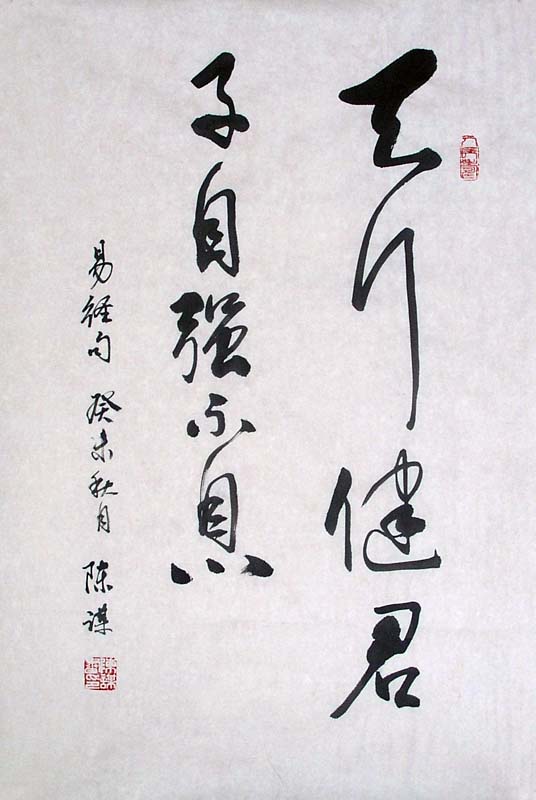 天行健君
子自强不息
易经句 癸未秋月 陈谋